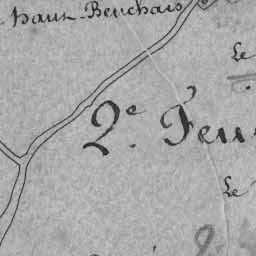 haut-Beuchais
Le
2.e Feu
Le
2